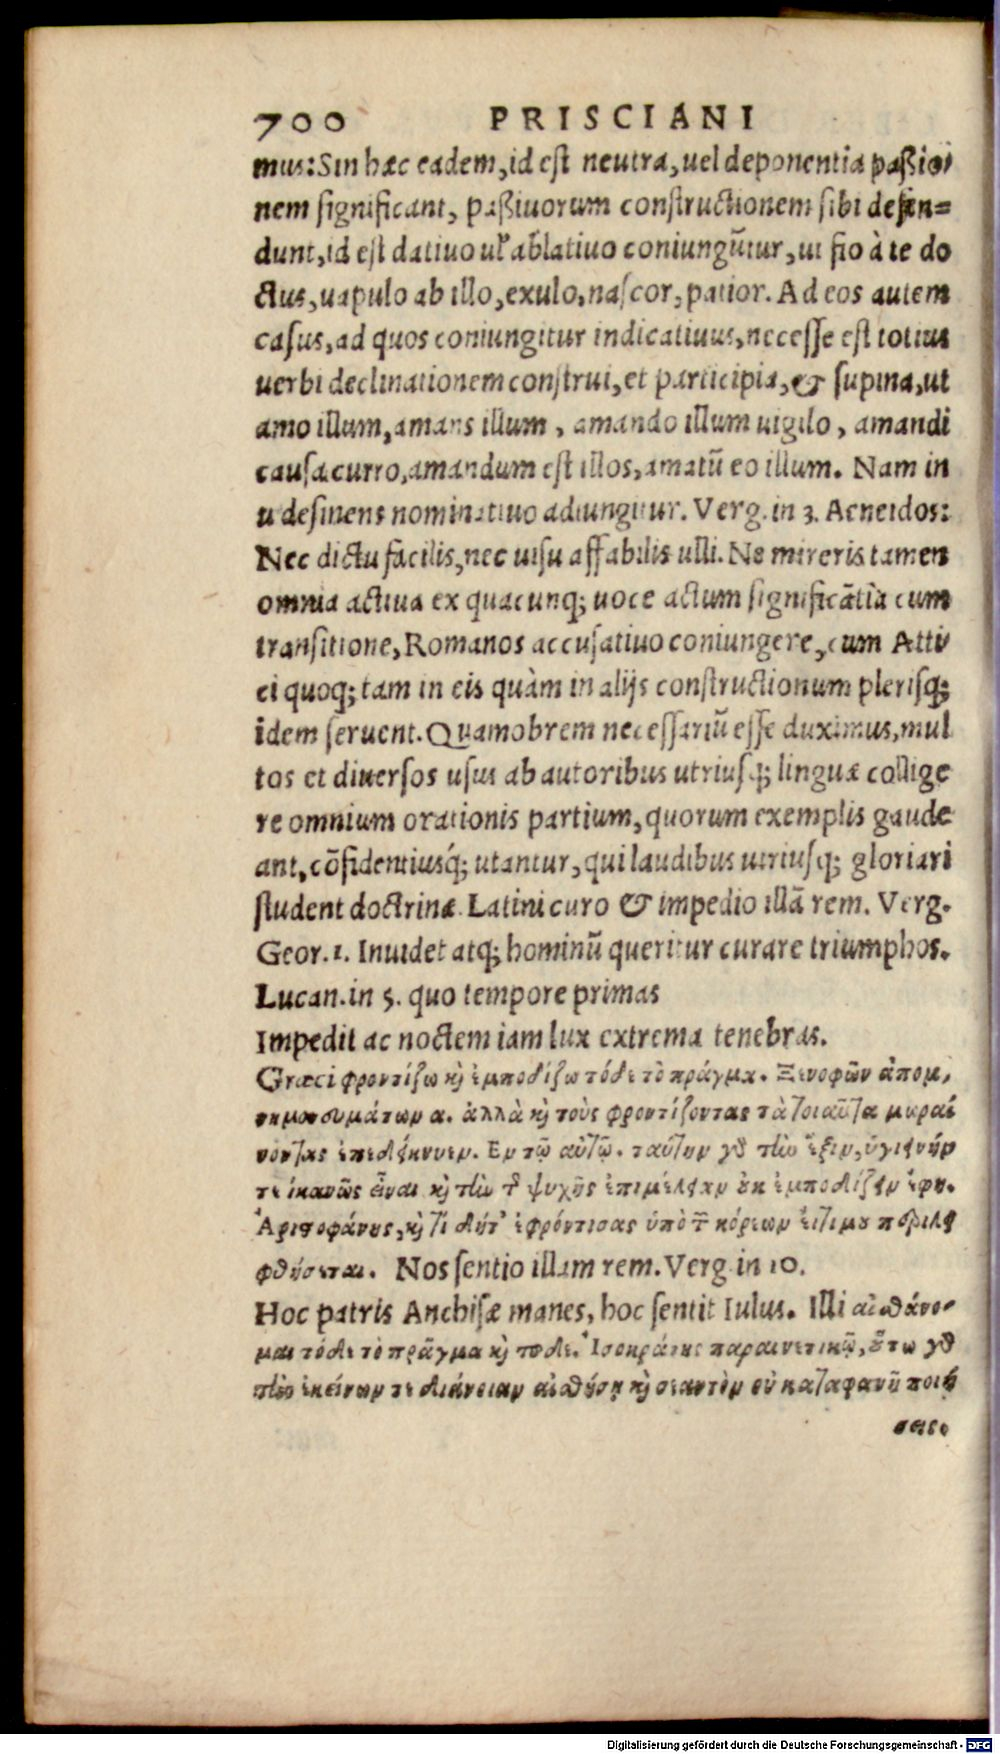 700 PRISCIANI
mus: Sin hæc eadem, id est neutra, uel deponentia paßio-
nem significant, paßiuorum constructionem sibi defen-
dunt, id est datiuo uľ ablatiuo coniungũtur, ut fio à te do
ctus, uapulo ab illo, exulo, nascor, patior. Ad eos autem
casus, ad quos coniungitur indicatiuus, necesse est totius
uerbi declinationem construi, et participia, & supina, ut
amo illum, amans illum, amando illum uigilo, amandi
causa curro, amandum est illos, amatũ eo illum. Nam in
u desinens nominatiuo adiungitur. Verg. in 3. Aeneidos:
Nec dictu facilis, nec uisu affabilis ulli. Ne mireris tamen
omnia actiua ex quacunq; uoce actum significãtia cum
transitione, Romanos accusatiuo coniungere, cum Atti-
ci quoq; tam in eis quàm in alijs constructionum plerisq;
idem seruent. Quamobrem necessariũ esse duximus, mul
tos et diuersos usus ab autoribus utriusq; linguæ collige
re omnium orationis partium, quorum exemplis gaude
ant, cõfidentiusq́; utantur, qui laudibus utriusq; gloriari
student doctrinæ. Latini curo & impedio illã rem. Verg.
Geor. 1. Inuidet atq; hominũ queritur curare triumphos.
Lucan. in 5. quo tempore primas
Impedit ac noctem iam lux extrema tenebras.
Græci φροντίζω κ̀ ἐμποδίζω τόδε τὸ πράγμα. Ξενοφῶν ἀπομ,
νημονευμάτων α. ἀλλὰ κ̀ τοὺς φροντίζοντας τὰ τοιαῦτα μωραί
νοντας ἐπεδείκνυεν. Εν τῷ αὐτῷ. ταύτην γὸ τὴν ἕξιν, ὑγιεινήν
τε ἱκανῶς εἶναι κ̀ τὴν τ͂ ψυχῆς ἐπιμέλειαν ȣ̓κ ἐμποδίζειν ἔφη.
Ἀριστοφάνης, κ̀ τί δῆτ' ἐφρόντισας ὑπὸ τ͂
φθήσεται. Nos sentio illam rem. Verg. in 10.
Hoc patris Anchisæ manes, hoc sentit Iulus. Illi αἰσθάνο-
μαι τόδε τὸ πρᾶγμα κ̀ τοδε. Ἰσοκράτης παραινετικῷ, ȣ̔́τω γὸ
τὴν ἐκείνων τε διάνοιαν αἰσθήσῃ κ̀ σεαυτὸν οὐ καταφανῆ ποιή
σεις.
Digitalisierung gefördert durch die Deutsche Forschungsgemeinschaft - DFG